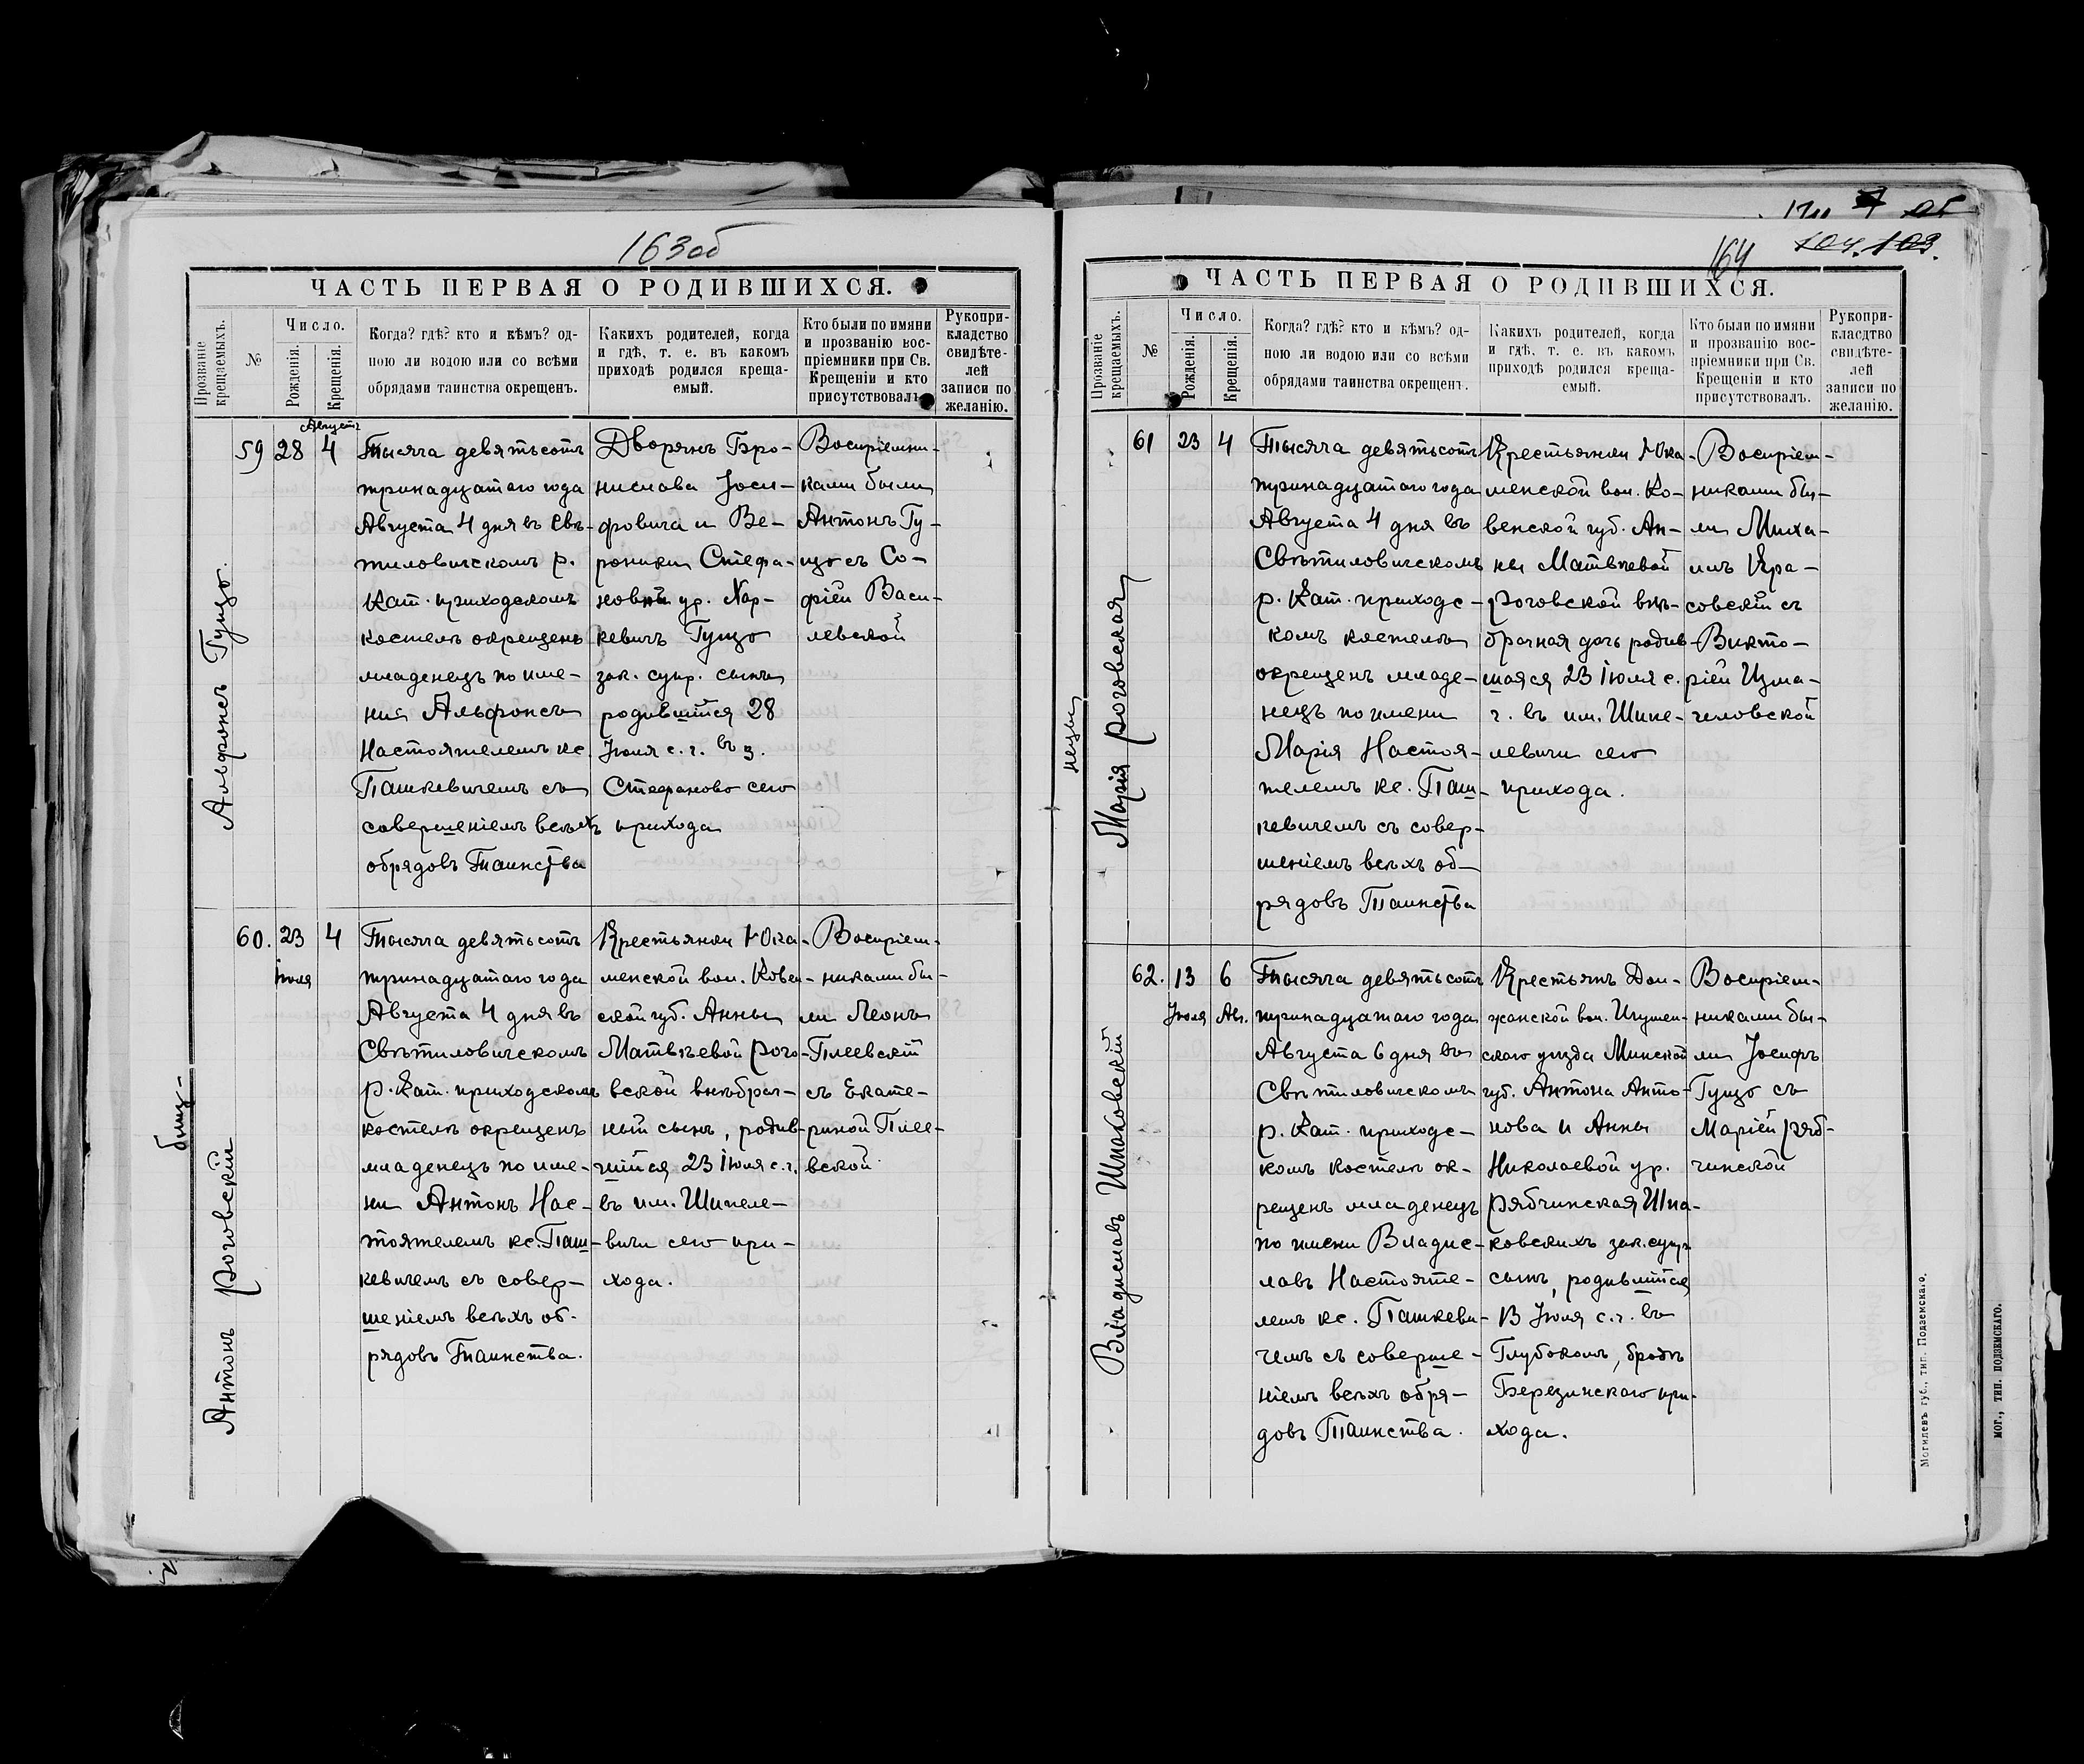 163об
ЧАСТЬ ПЕРВАЯ О РОДИВШИХСЯ.
Прозваніе крещаемыхъ.
№
Число.
Рожденія.
Крещенія.
Когда? гдѣ? кто и кѣмъ? од-
ною ли водою или со всѣми
обрядами таинства окрещенъ.
Какихъ родителей, когда
и гдѣ, т. е. въ какомъ
приходѣ родился креща-
емый.
Кто были по имяни
и прозванію вос-
пріемники при Св.
Крещеніи и кто
присутствовалъ.
Рукопри-
кладство
свидѣте-
лей
записи по
желанію.
Альфонсъ Гуцзо.
59
28
Августъ
4
Тысяча девятьсотъ
тринадцатаго года
Августа 4 дня въ Свѣ-
тиловическомъ р.
Кат. приходскомъ
костелѣ окрещенъ
младенецъ по име-
ни Альфонсъ
Настоятелемъ кс.
Пашкевичемъ съ
совершеніемъ всѣхъ
обрядовъ Таинства
Дворянъ Бро-
нислава Іоси-
фовича и Ве-
роники Стефа-
новны ур. Хар-
кевичъ Гуцзо
зак. супр. сынъ
родившійся 28
Іюля с. г. въ з.
Стефаново сего
прихода
Воспріемни-
ками были
Антонъ Гу-
цзо съ Со-
фіей Васи-
левской
Антонъ Роговскій
близ-
60.
23
Іюля
4
Тысяча девятьсотъ
тринадцатаго года
Августа 4 дня въ
Свѣтиловическомъ
р. Кат. приходскомъ
костелѣ окрещенъ
младенецъ по име-
ни Антонъ Нас-
тоятелемъ кс. Паш-
кевичемъ съ совер-
шеніемъ всѣхъ об-
рядовъ Таинства.
Крестьянки Юка-
менской вол. Ковен-
ской губ. Анны
Матвѣевой Рого-
вской внѣбрач-
ный сынъ, родив-
шійся 23 Іюля с. г.
въ им. Шипеле-
вичи сего при-
хода.
Воспріем-
никами бы-
ли Леонъ
Плеевскій
съ Екате-
риной Плее-
вской
164
104. 103.
ЧАСТЬ ПЕРВАЯ О РОДИВШИХСЯ.
Прозваніе крещаемыхъ.
№
Число.
Рожденія.
Крещенія.
Когда? гдѣ? кто и кѣмъ? од-
ною ли водою или со всѣми
обрядами таинства окрещенъ.
Какихъ родителей, когда
и гдѣ, т. е. въ какомъ
приходѣ родился креща-
емый.
Кто были по имяни
и прозванію вос-
пріемники при Св.
Крещеніи и кто
присутствовалъ.
Рукопри-
кладство
свидѣте-
лей
записи по
желанію.
нецы
Марія Роговская
61
23
4
Тысяча девятьсотъ
тринадцатаго года
Августа 4 дня въ
Свѣтиловическомъ
р. Кат. приходс-
комъ костелѣ
окрещенъ младе-
нецъ по имени
Марія Настоя-
телемъ кс. Паш-
кевичемъ съ совер-
шеніемъ всѣхъ об-
рядовъ Таинства
Крестьянки Юка-
менской вол. Ко-
венской губ. Ан-
ны Матвѣевой
Роговской внѣ-
брачная дочь родив-
шаяся 23 Іюля с.
г. въ им. Шипе-
левичи сего
прихода.
Воспріем-
никами бы-
ли Миха-
илъ Кра-
совскій съ
Викто-
ріей Цзма-
человской
Владиславъ Шпаковскій
62.
13
Іюля
6
Авг.
Тысяча девятьсотъ
тринадцатаго года
Августа 6 дня въ
Свѣтиловическомъ
р. Кат. приходс-
комъ костелѣ ок-
рещенъ младенецъ
по имени Владис-
лавъ Настояте-
лемъ кс. Пашкеви-
чемъ съ соверше-
ніемъ всѣхъ обря-
довъ Таинства.
Крестьянъ Дол-
жанской вол. Игумен-
скаго уѣзда Минской
губ. Антона Анто-
нова и Анны
Николаевой ур.
Рябчинская Шпа-
ковскихъ зак. супр.
сынъ, родившійся
13 Іюля с. г. въ
Глубокомъ, бродѣ
Березинскаго при-
хода.
Воспріем-
никами бы-
ли Іосифъ
Гуцзо съ
Маріей Ряб-
чинской
Могилевъ губ., тип. Подземскаго.
МОГ., ТИП. ПОДЗЕМСКАГО.